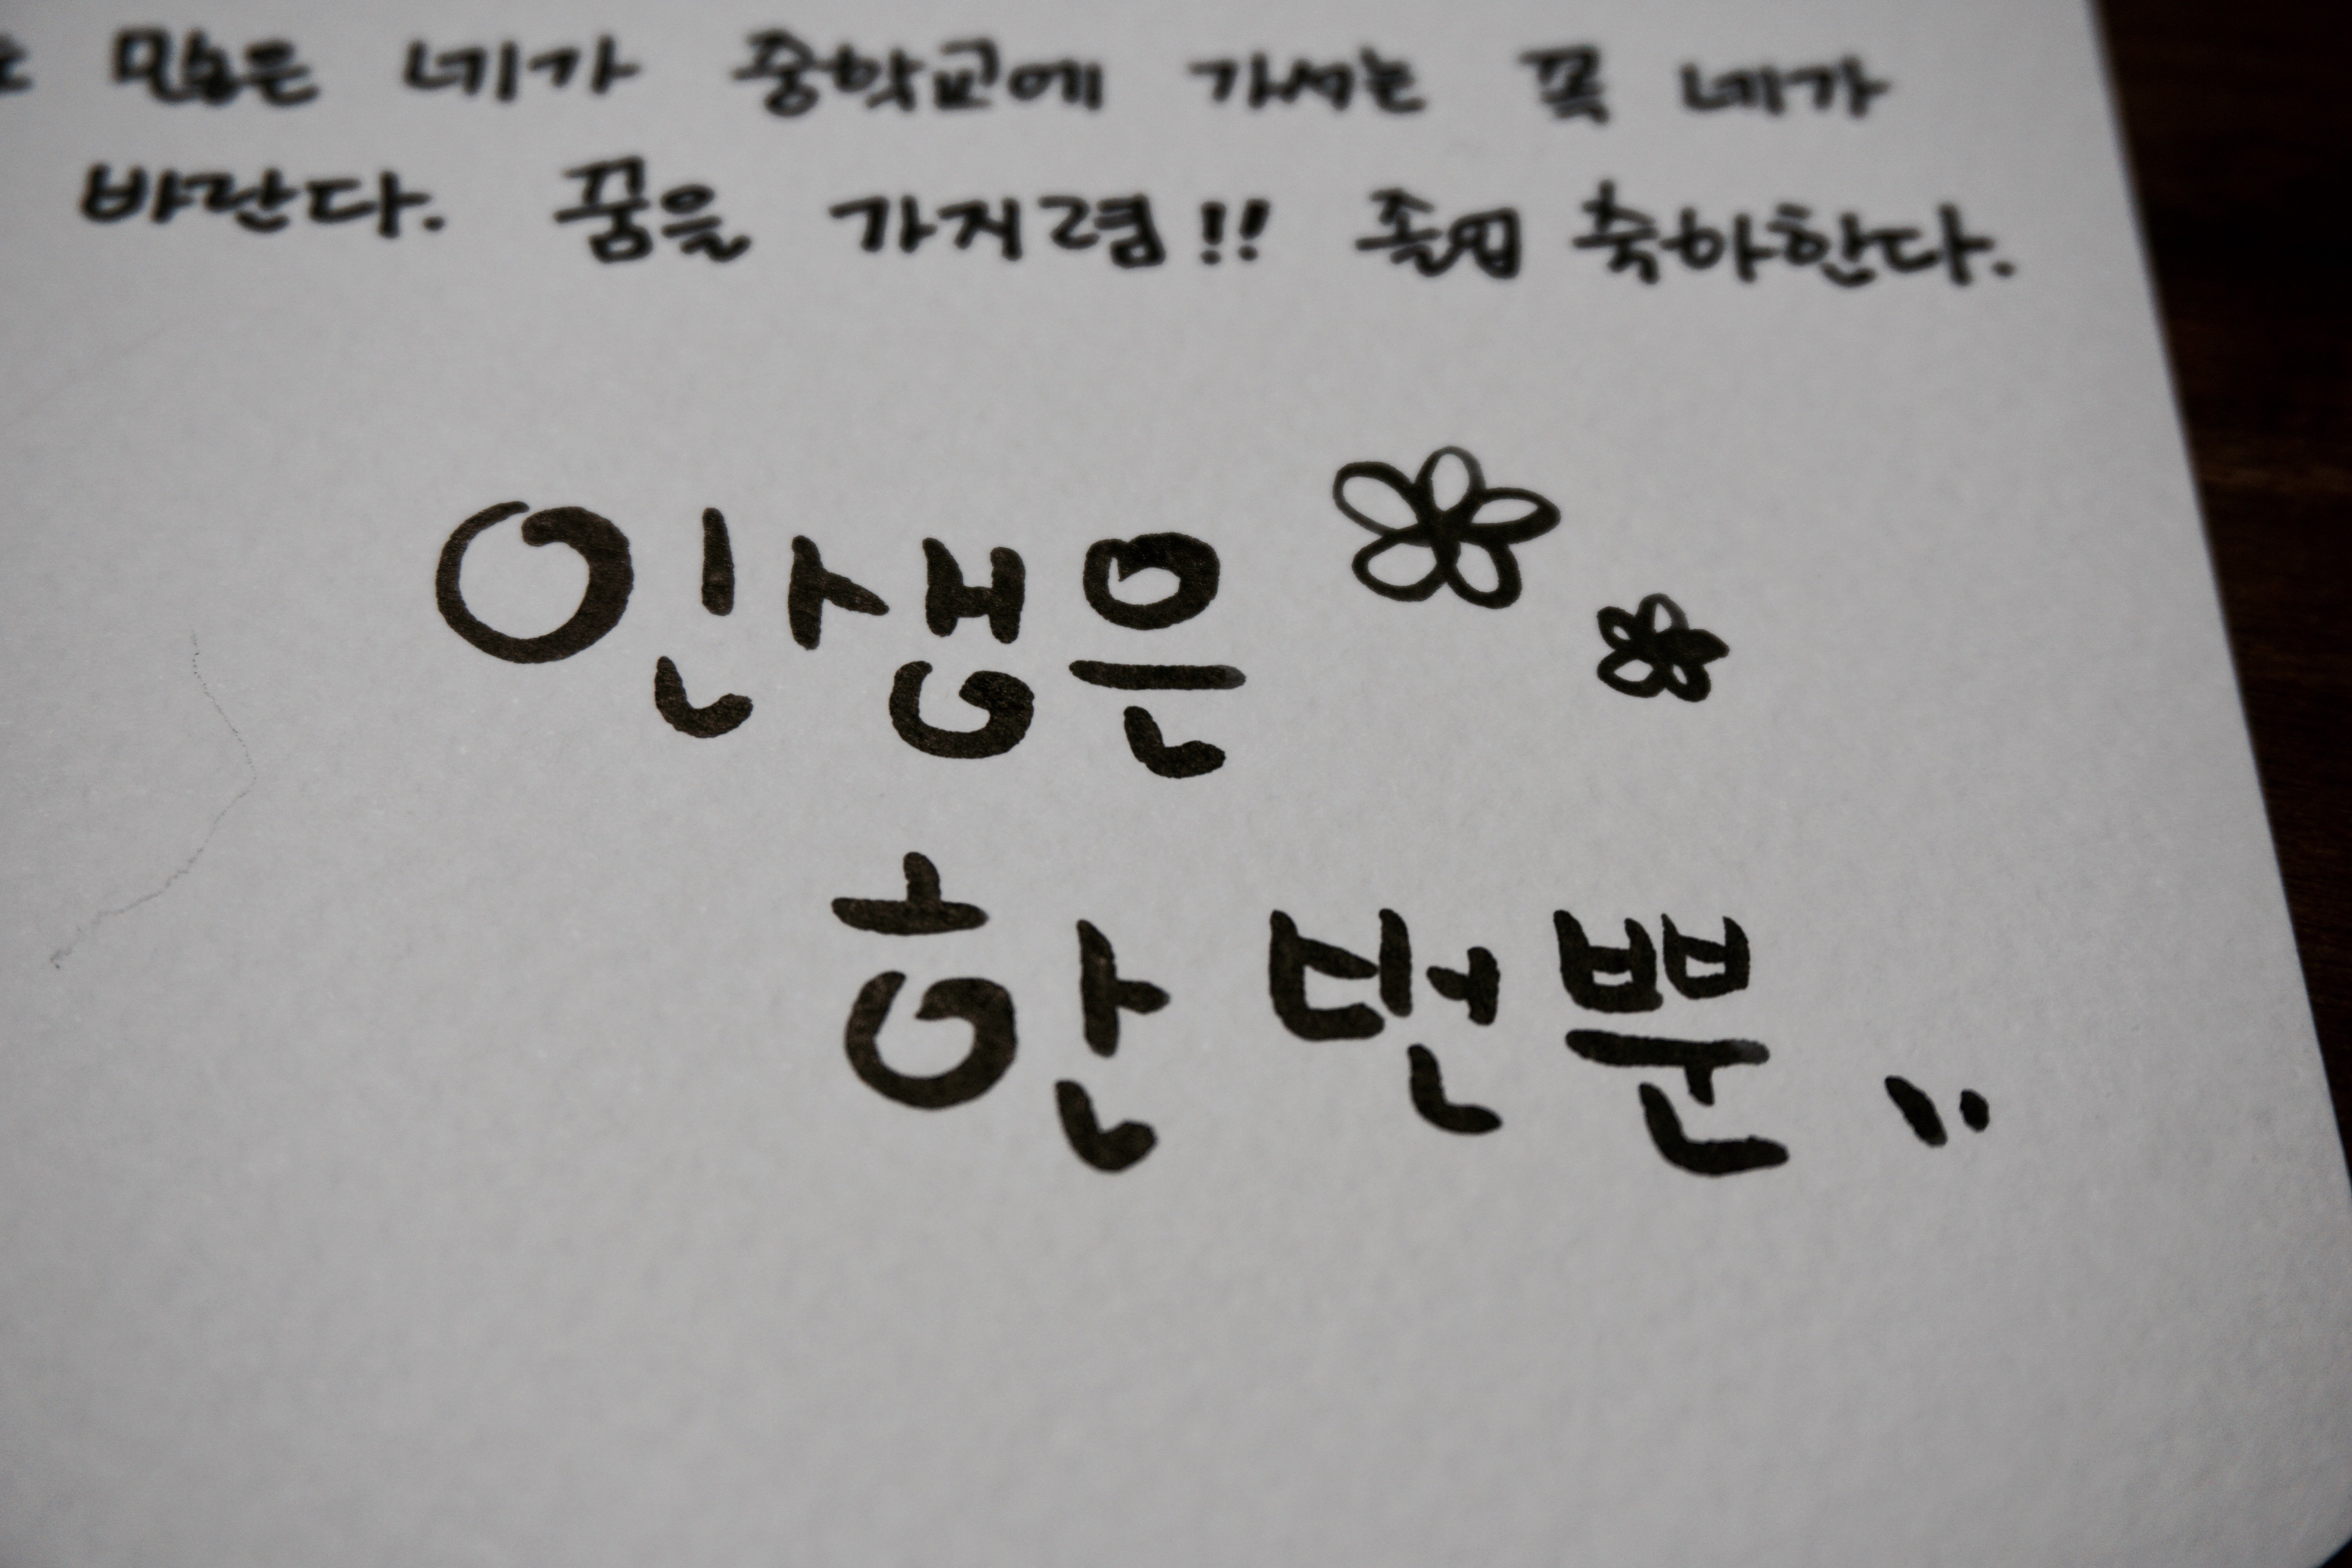 많은 네가 중학교에 가서는 꼭 네가
바란다. 꿈을 가지렴!! 졸업 축하한다.
인생은
한 번뿐